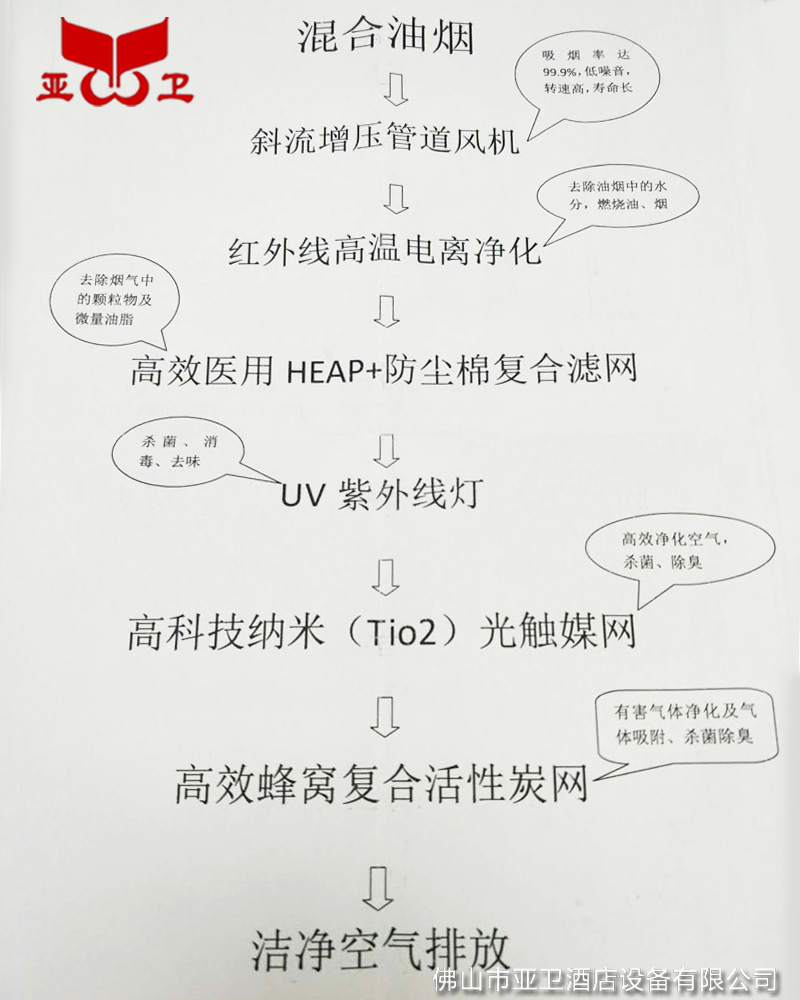 亚卫
混合油烟
吸烟率达
99.9%,低噪音,
转速高,寿命长
斜流增压管道风机
去除油烟中的水
分,燃烧油、烟
红外线高温电离净化
去除烟气中
的颗粒物及
微量油脂
高效医用 HEAP+防尘棉复合滤网
杀菌、消
毒、去味
UV 紫外线灯
高效净化空气,
杀菌、除臭
高科技纳米（Tio2）光触媒网
有害气体净化及气
体吸附、杀菌除臭
高效蜂窝复合活性炭网
洁净空气排放
佛山市亚卫酒店设备有限公司